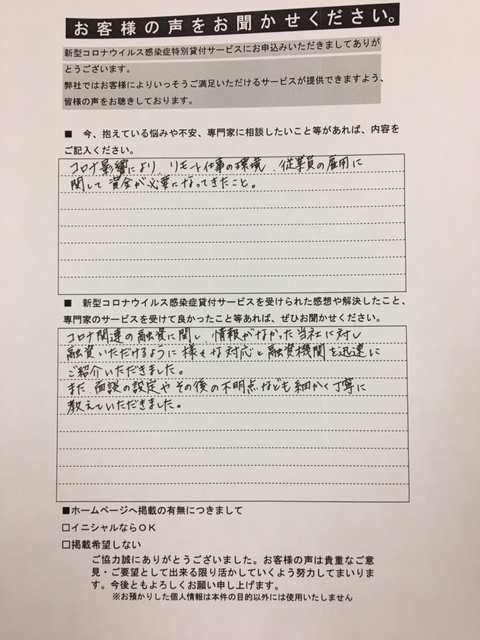 お客様の声をお聞かせください。
新型コロナウイルス感染症特別貸付サービスにお申込みいただきましてありが
とうございます。
弊社ではお客様によりいっそうご満足いただけるサービスが提供できますよう、
皆様の声をお聴きしております。
■ 今、抱えている悩みや不安、専門家に相談したいこと等があれば、内容を
ご記入ください。
コロナ影響により、リモート仕事の環境、従業員の雇用に
関して資金が必要になってきたこと。
■ 新型コロナウイルス感染症貸付サービスを受けられた感想や解決したこと、
専門家のサービスを受けて良かったこと等あれば、ぜひお聞かせください。
コロナ関連の融資に関し 情報がなかった当社に対し
融資いただけるように様々な対応と融資機関を迅速に
ご紹介いただきました。
また 面談の設定やその後の不明点なども細かく丁寧に
教えていただきました。
■ホームページへ掲載の有無につきまして
□イニシャルならOK
□掲載希望しない
ご協力誠にありがとうございました。お客様の声は貴重なご意
見・ご要望として出来る限り活かしていくよう努力してまいりま
す。今後ともよろしくお願い申し上げます。
※お預かりした個人情報は本件の目的以外には使用いたしません